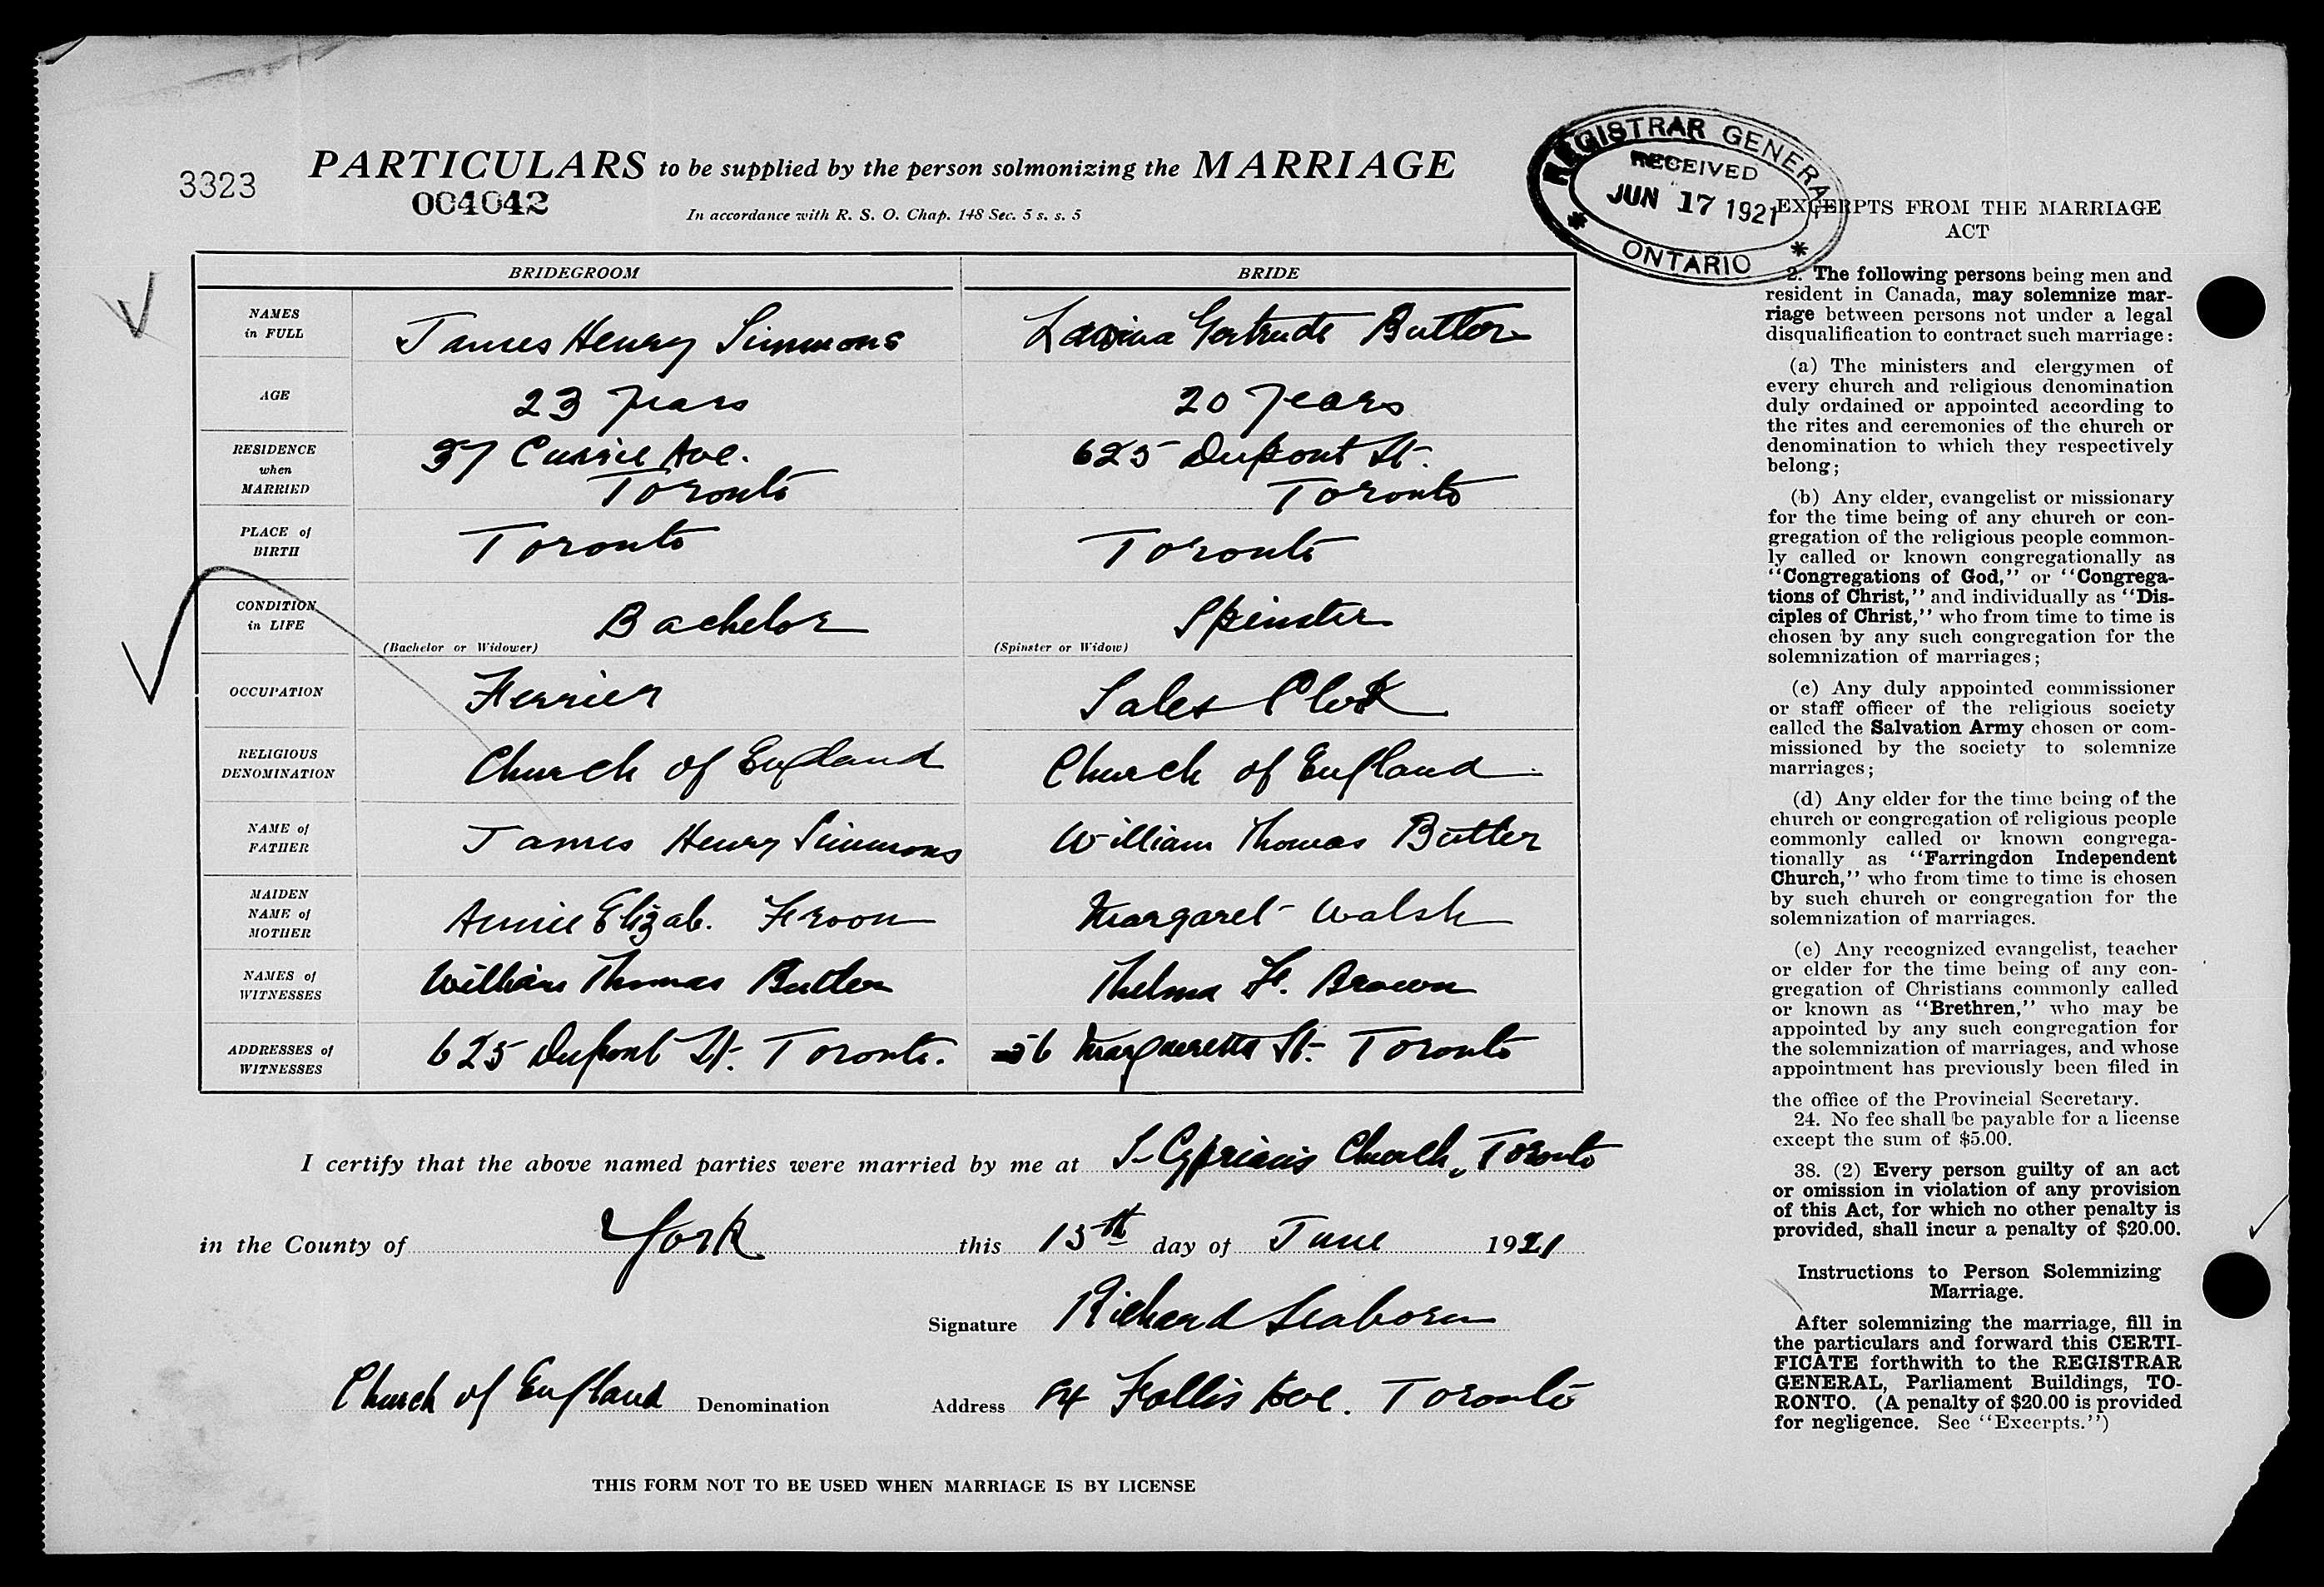 3323
PARTICULARS to be supplied by the person solmonizing the MARRIAGE
004042
In accordance with R. S. O. Chap. 148 Sec. 5 s. s. 5
REGISTRAR GENERAL
RECEIVED
JUN 17 1921
ONTARIO
BRIDEGROOM
BRIDE
NAMES
in FULL
James Henry Simmons
Lavina Gertrude Butler
AGE
23 Years
20 Years
RESIDENCE
when
MARRIED
37 Currie Ave.
Toronto
625 Dupont St.
Toronto
PLACE of
BIRTH
Toronto
Toronto
CONDITION
in LIFE
(Bachelor or Widower)
Bachelor
(Spinster or Widow)
Spinster
OCCUPATION
Ferrier
Sales Clerk
RELIGIOUS
DENOMINATION
Church of England
Church of England
NAME of
FATHER
James Henry Simmons
William Thomas Butler
MAIDEN
NAME of
MOTHER
Annie Elizab. Froon
Margaret Walsh
NAMES of
WITNESSES
William Thomas Butler
Thelma F. Brown
ADDRESSES of
WITNESSES
625 Dupont St. Toronto.
56 Margueretta St. Toronto
I certify that the above named parties were married by me at S. Cyprian's Church, Toronto
in the County of York this 15th day of June 1921
Signature Richard Seaborn
Church of England Denomination Address 94 Follis Ave. Toronto
THIS FORM NOT TO BE USED WHEN MARRIAGE IS BY LICENSE
EXCERPTS FROM THE MARRIAGE
ACT
2. The following persons being men and
resident in Canada, may solemnize mar-
riage between persons not under a legal
disqualification to contract such marriage:
(a) The ministers and clergymen of
every church and religious denomination
duly ordained or appointed according to
the rites and ceremonies of the church or
denomination to which they respectively
belong;
(b) Any elder, evangelist or missionary
for the time being of any church or con-
gregation of the religious people common-
ly called or known congregationally as
"Congregations of God," or "Congrega-
tions of Christ," and individually as "Dis-
ciples of Christ," who from time to time is
chosen by any such congregation for the
solemnization of marriages;
(c) Any duly appointed commissioner
or staff officer of the religious society
called the Salvation Army chosen or com-
missioned by the society to solemnize
marriages;
(d) Any elder for the time being of the
church or congregation of religious people
commonly called or known congrega-
tionally as "Farringdon Independent
Church," who from time to time is chosen
by such church or congregation for the
solemnization of marriages.
(e) Any recognized evangelist, teacher
or elder for the time being of any con-
gregation of Christians commonly called
or known as "Brethren," who may be
appointed by any such congregation for
the solemnization of marriages, and whose
appointment has previously been filed in
the office of the Provincial Secretary.
24. No fee shall be payable for a license
except the sum of $5.00.
38. (2) Every person guilty of an act
or omission in violation of any provision
of this Act, for which no other penalty is
provided, shall incur a penalty of $20.00.
Instructions to Person Solemnizing
Marriage.
After solemnizing the marriage, fill in
the particulars and forward this CERTI-
FICATE forthwith to the REGISTRAR
GENERAL, Parliament Buildings, TO-
RONTO. (A penalty of $20.00 is provided
for negligence. See "Excerpts.")